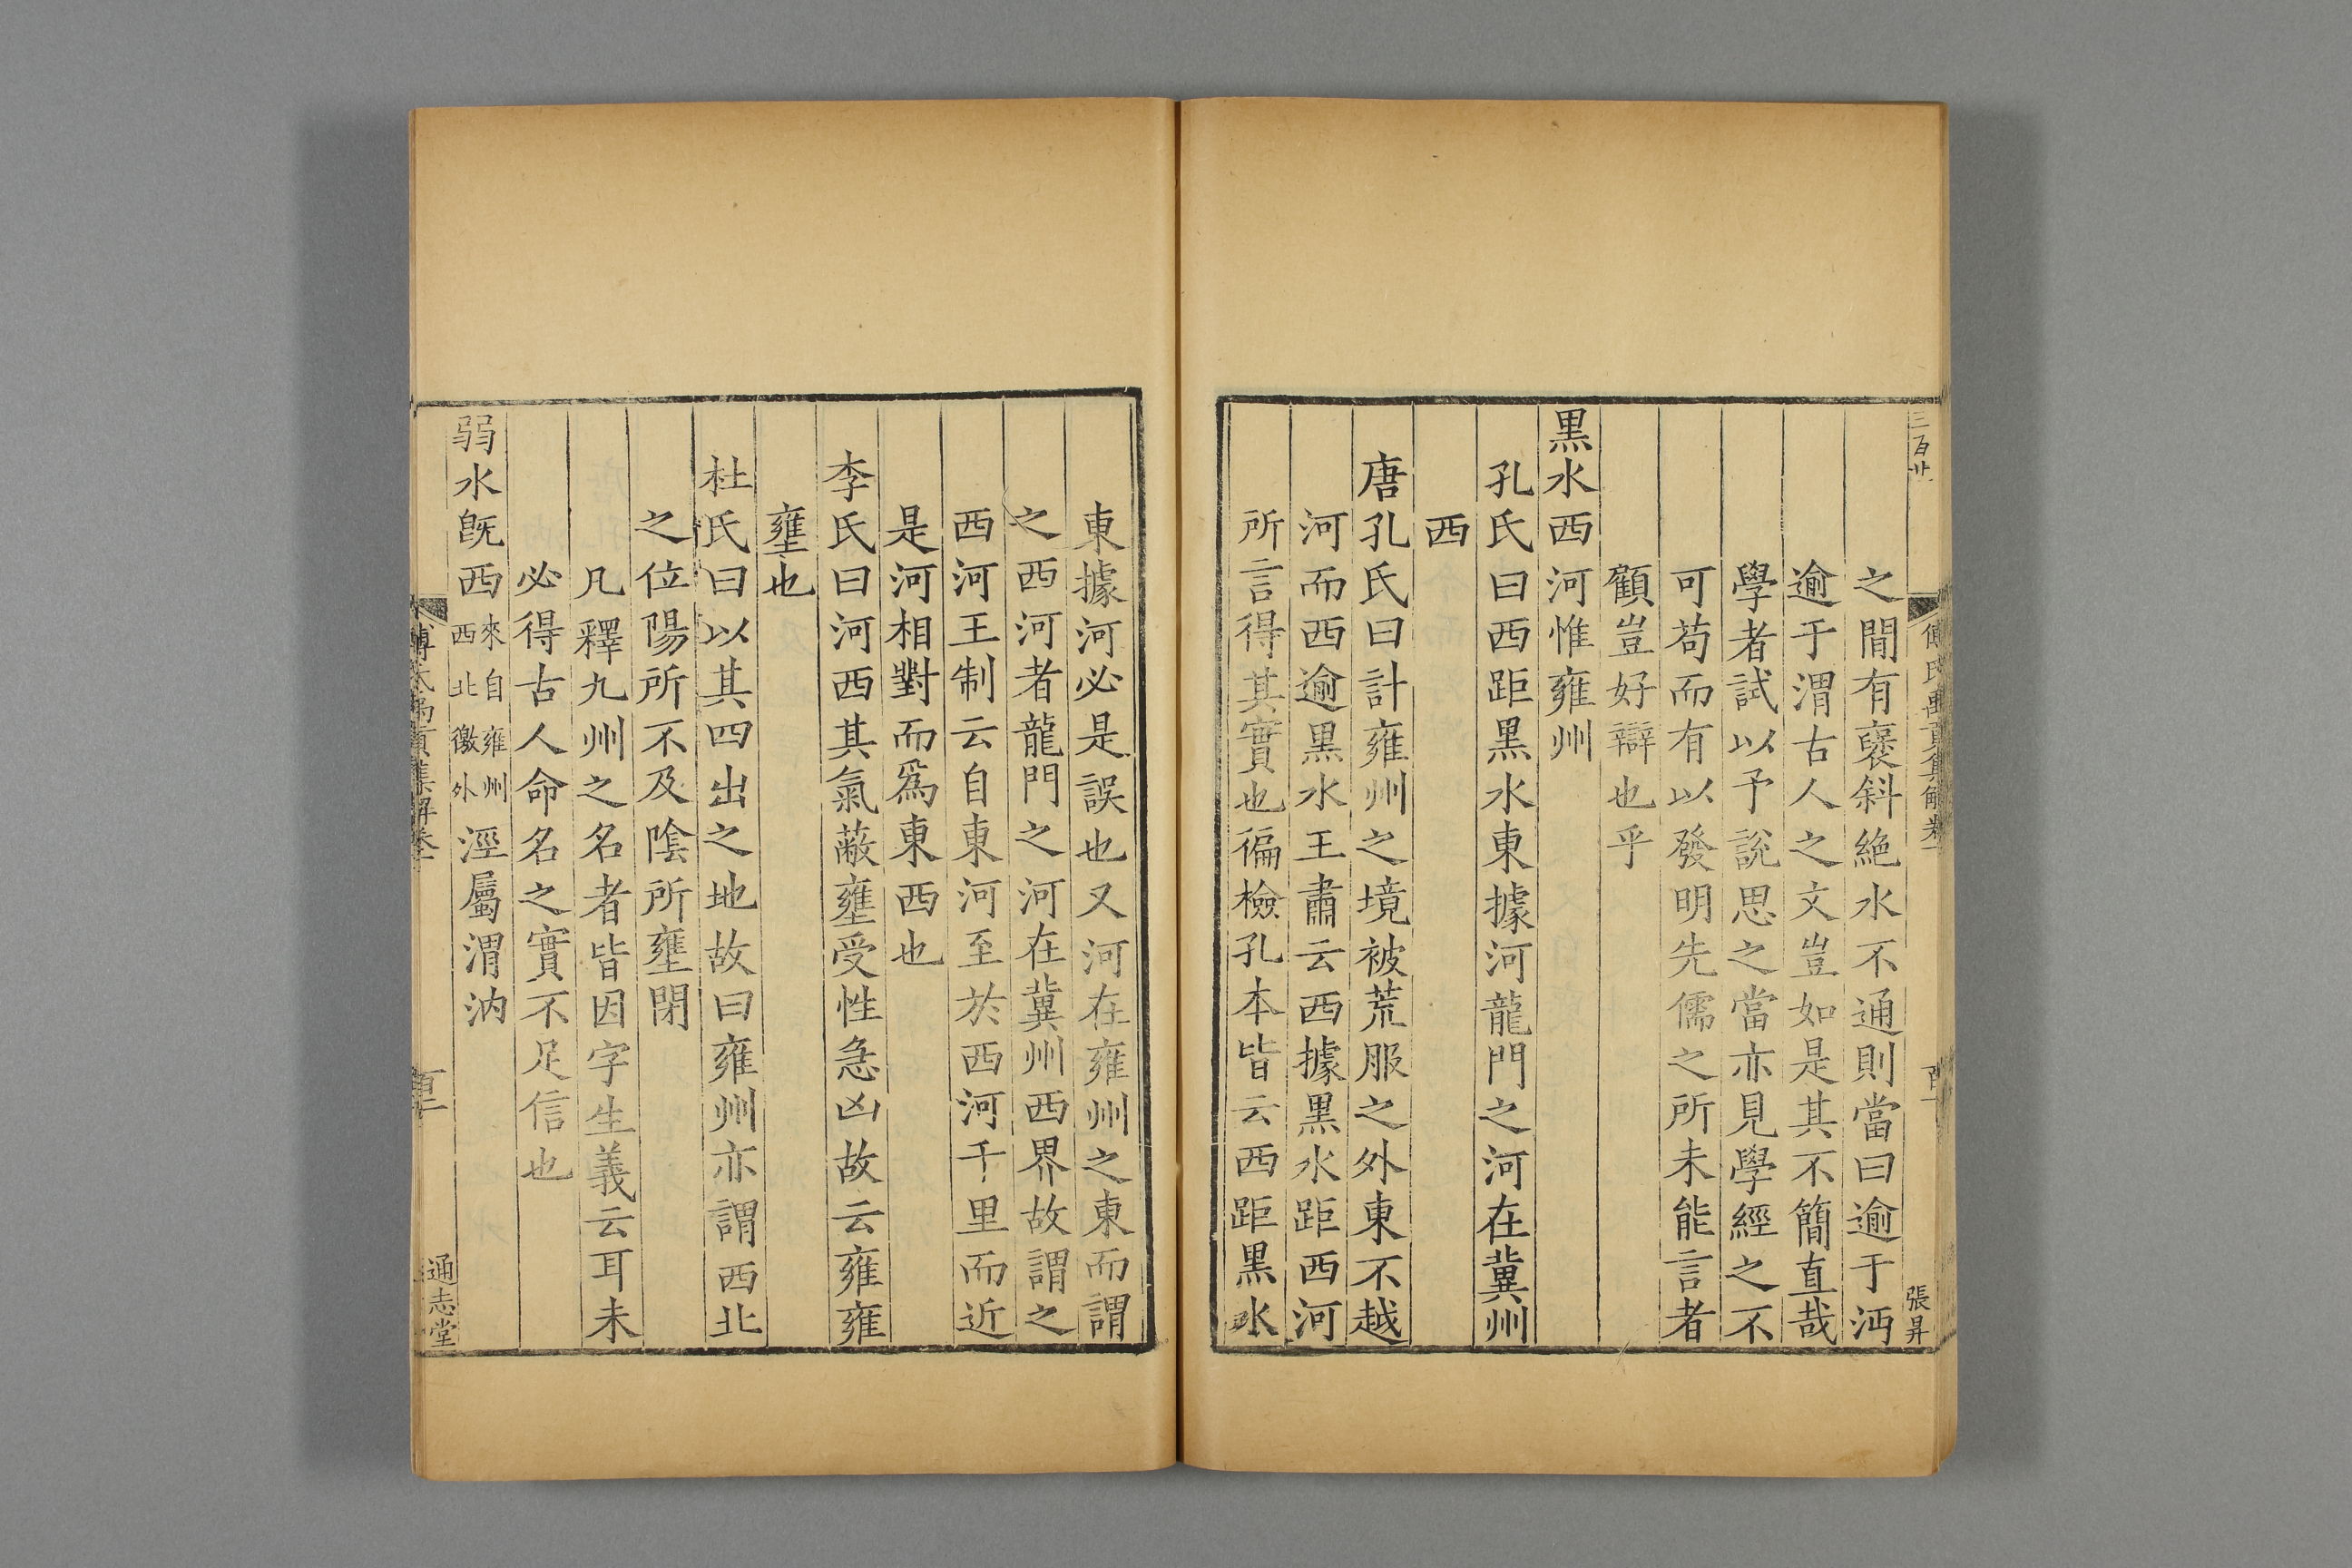 三百廿
傅氏禹貢集解卷一
張昇
之間有褒斜絶水不通則當曰逾于沔
逾于渭古人之文豈如是其不簡直哉
學者試以予說思之當亦見學經之不
可苟而有以發明先儒之所未能言者
顧豈好辯也乎
黒水西河惟雍州
孔氏曰西距黒水東據河龍門之河在冀州
西
唐孔氏曰計雍州之境被荒服之外東不越
河而西逾黒水王肅云西據黒水距西河
所言得其實也徧檢孔本皆云西距黒水
東據河必是誤也又河在雍州之東而謂
之西河者龍門之河在冀州西界故謂之
西河王制云自東河至於西河千里而近
是河相對而爲東西也
李氏曰河西其氣蔽壅受性急凶故云雍雍
壅也
杜氏曰以其四出之地故曰雍州亦謂西北
之位陽所不及陰所壅閉
凡釋九州之名者皆因字生義云耳未
必得古人命名之實不足信也
弱水旣西來自雍州西北徼外涇屬渭汭
傅氏禹貢集解卷一
通志堂